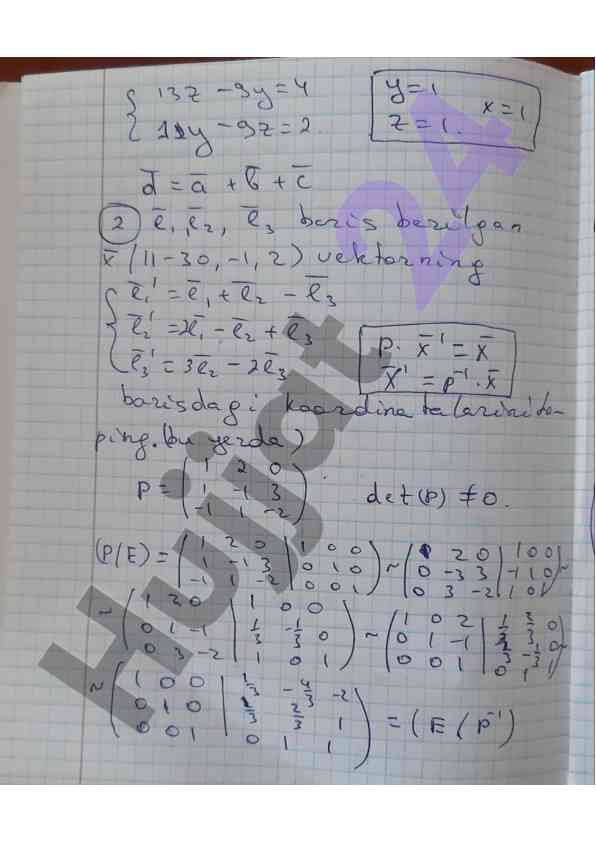 { 13z - 9y = 4   y = 1
{ 11y - 9z = 2.   z = 1.   x = 1
d̅ = a̅ + b̅ + c̅
② e̅₁, e̅₂, e̅₃ bazis berilgan
x̅ (11 -30, -1, 2) vektorning
{ e̅₁' = e̅₁ + e̅₂ - e̅₃
{ e̅₂' = 2e̅₁ - e̅₂ + e̅₃   P · x̅' = x̅
{ e̅₃' = 3e̅₂ - 2e̅₃   x̅' = P⁻¹ · x̅
bazisdagi koordinatalarini to-
ping. (bu yerda)
P = ( 1 2 0 ; 1 -1 3 ; -1 1 -2 )   det(P) ≠ 0.
(P/E) = ( 1 2 0 | 1 0 0 ; 1 -1 3 | 0 1 0 ; -1 1 -2 | 0 0 1 ) ~ ( 1 2 0 | 1 0 0 ; 0 -3 3 | -1 1 0 ; 0 3 -2 | 1 0 1 ) ~
~ ( 1 2 0 | 1 0 0 ; 0 1 -1 | 1/3 -1/3 0 ; 0 3 -2 | 1 0 1 ) ~ ( 1 0 2 | 1/3 2/3 0 ; 0 1 -1 | 1/3 -1/3 0 ; 0 0 1 | 0 1 1 ) ~
~ ( 1 0 0 | 1/3 -4/3 -2 ; 0 1 0 | 1/3 2/3 1 ; 0 0 1 | 0 1 1 ) = (E / P⁻¹)
Hujjat 24